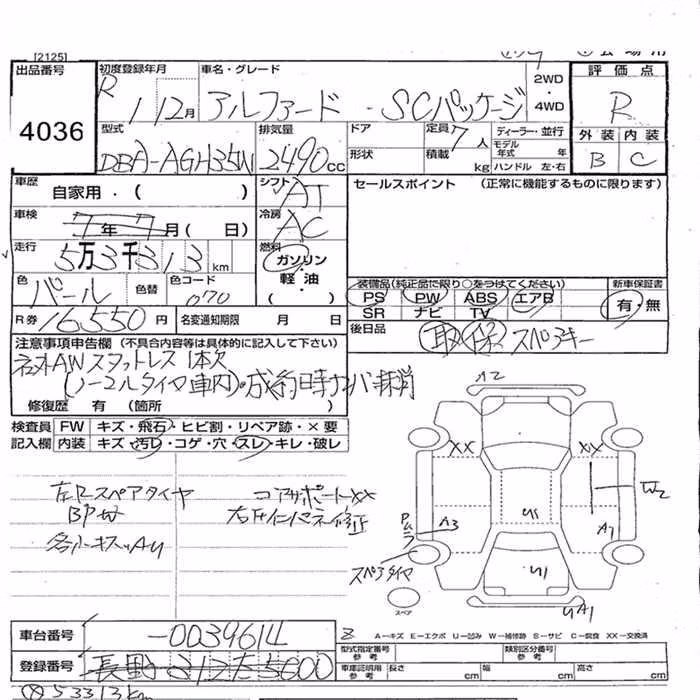 [2125]
出品番号 初度登録年月 車名・グレード 2WD・4WD 評価点
4036
R 1 12月 アルファード SCパッケージ R
型式 排気量 ドア 定員 7人 ディーラー・並行 外装 内装
DBA-AGH35W 2490cc 形状 積載 kg モデル年式 年 ハンドル 左・右 B C
車歴 自家用・( ) シフト AT セールスポイント (正常に機能するものに限ります)
車検 7年7月( 日) 冷房 AC
走行 5万3千313km 燃料 ガソリン・軽油( )
色 パール 色替 色コード 070
装備品(純正品に限り○をつけてください) 新車保証書
PS PW ABS エアB 有・無
SR ナビ TV
R券 16,550円 名変通知期限 月 日 後日品 取 保 スペアキー
注意事項申告欄 (不具合内容等は具体的に記入して下さい)
社外AWスタットレス 1本欠
(ノーマルタイヤ車内)・成約日時ナンバー抹消
修復歴 有 (箇所 )
検査員 FW キズ・飛石・ヒビ割・リペア跡・×要
記入欄 内装 キズ・汚レ・コゲ・穴・スレ・キレ・破レ
A2
XX XX
左Rスペアタイヤ コアサポートXX W2
U1
各小キズ、AU A3 A1
スペアタイヤ U1
スペアー UA1
車台番号 -0039614 A−キズ E−エクボ U−凹み W−補修跡 S−サビ C−腐食 XX−交換済
型式指定番号 参考 類別区分番号 参考
登録番号 長野 312 た 5600 車庫証明用参考 長さ cm 幅 cm 高さ cm
53313km